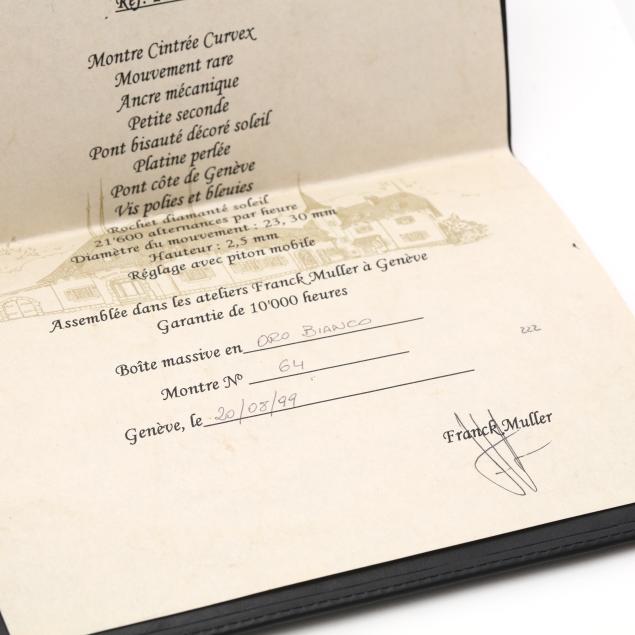 Réf:
Montre Cintrée Curvex
Mouvement rare
Ancre mécanique
Petite seconde
Pont bisauté décoré soleil
Platine perlée
Pont côte de Genève
Vis polies et bleuies
Rochet diamanté soleil
21'600 alternances par heure
Diamètre du mouvement : 23, 30 mm
Hauteur : 2,5 mm
Réglage avec piton mobile
Assemblée dans les ateliers Franck Muller à Genève
Garantie de 10'000 heures
Boîte massive en ORO BIANCO
Montre Nº 64
Genève, le 20/08/99
Franck Muller